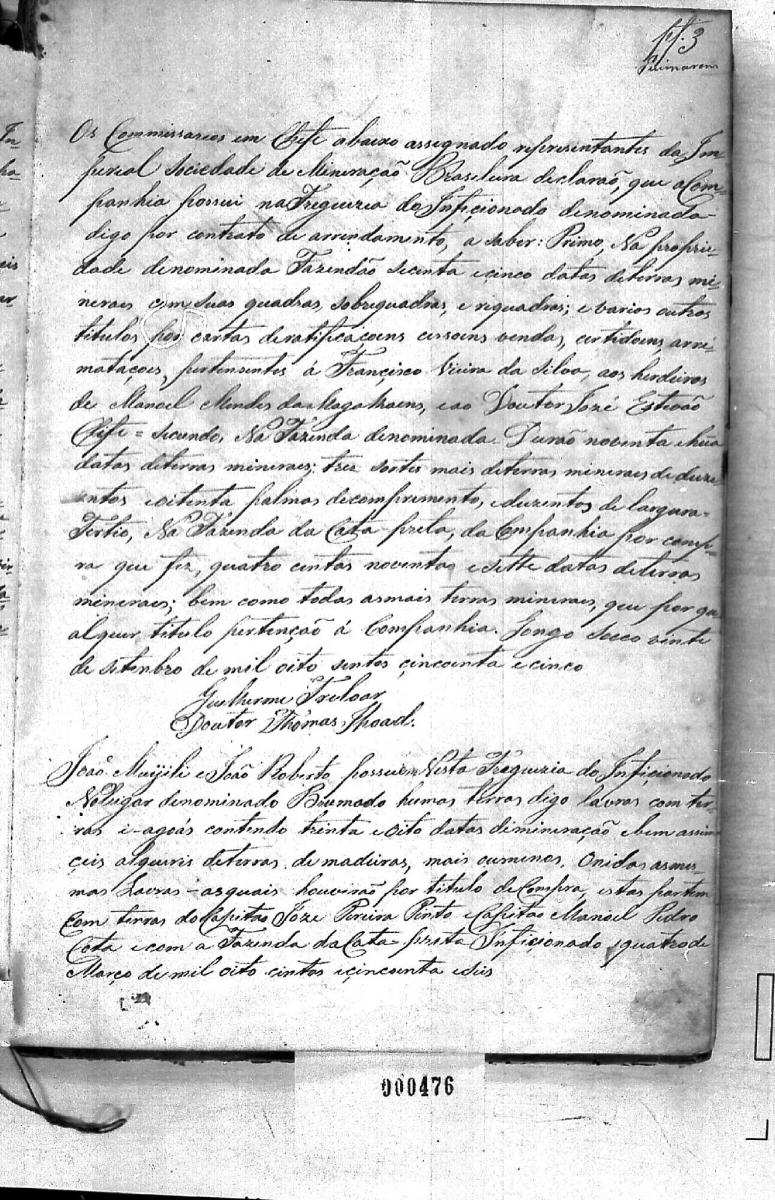 fl. 3
Guimarens
Os Commissarios em Chefe abaixo assegnado representantes da Im=
perial Sociedade de Mineração Brasileira declarão, que a Com=
panhia possui na Freguezia do Inficionado denominada
digo por contrato de arrendamento, a saber: Primo, Na proprie
dade denominada Fazendão secenta e cinco datas de terras mi=
neraes com suas quadras, sobrequadras, e requadras; e varios outros
titulos, por cartas de ratificaçoens cessoens venda, certidoens, arre=
mataçoes, pertensentes á Francisco Vieira da Silva, aos herdeiros
de Manoel Mendes da Magalhaens, e ao Doutor José Estevão
Chefe = Secundo, Na Fazenda denominada Durão noventa e hua
datas de terras mineraes; tres sortes mais de terras mineraes de duze
entos e oitenta palmos de comprimento, e duzentos de largura=
Tertio, Na Fazenda da Cata-preta, da Companhia por comp=
ra que fez, quatro centas noventas e sette datas de terras
mineraes; bem como todas as mais terras mineraes, que por qu
alquer titulo pertenção á Companhia. Gongo Socco vinte
de setenbro de mil oito sentos çincoenta e cinco
Guilherme Treloar
Doutor Thomas
João e João Roberto, possuem Nesta Freguezia do Inficionado
No lugar denominado Brumado humas terras digo lavras com ter=
ras e agoás contendo trinta e oito datas di mineração e bem assim
çeis alqueires de terras de madeiras, mais ou menos, Onidas as mes=
mas Lavras - as quais houverão por titulo de Compra, estas partem
com terras do Capitão Jozé Pereira Pinto e Capitão Manoel Pedro
Cota e com a Fazenda da Cata-preta Inficionado quatro de
Março de mil oito centos e çincoenta e seis
000476